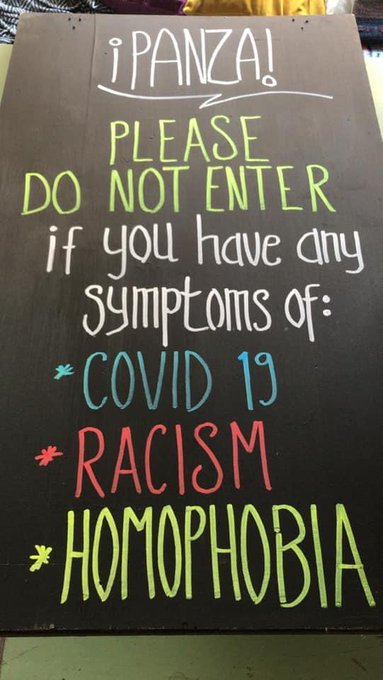 ¡PANZA!
PLEASE
DO NOT ENTER
if you have any
symptoms of:
* COVID 19
* RACISM
* HOMOPHOBIA